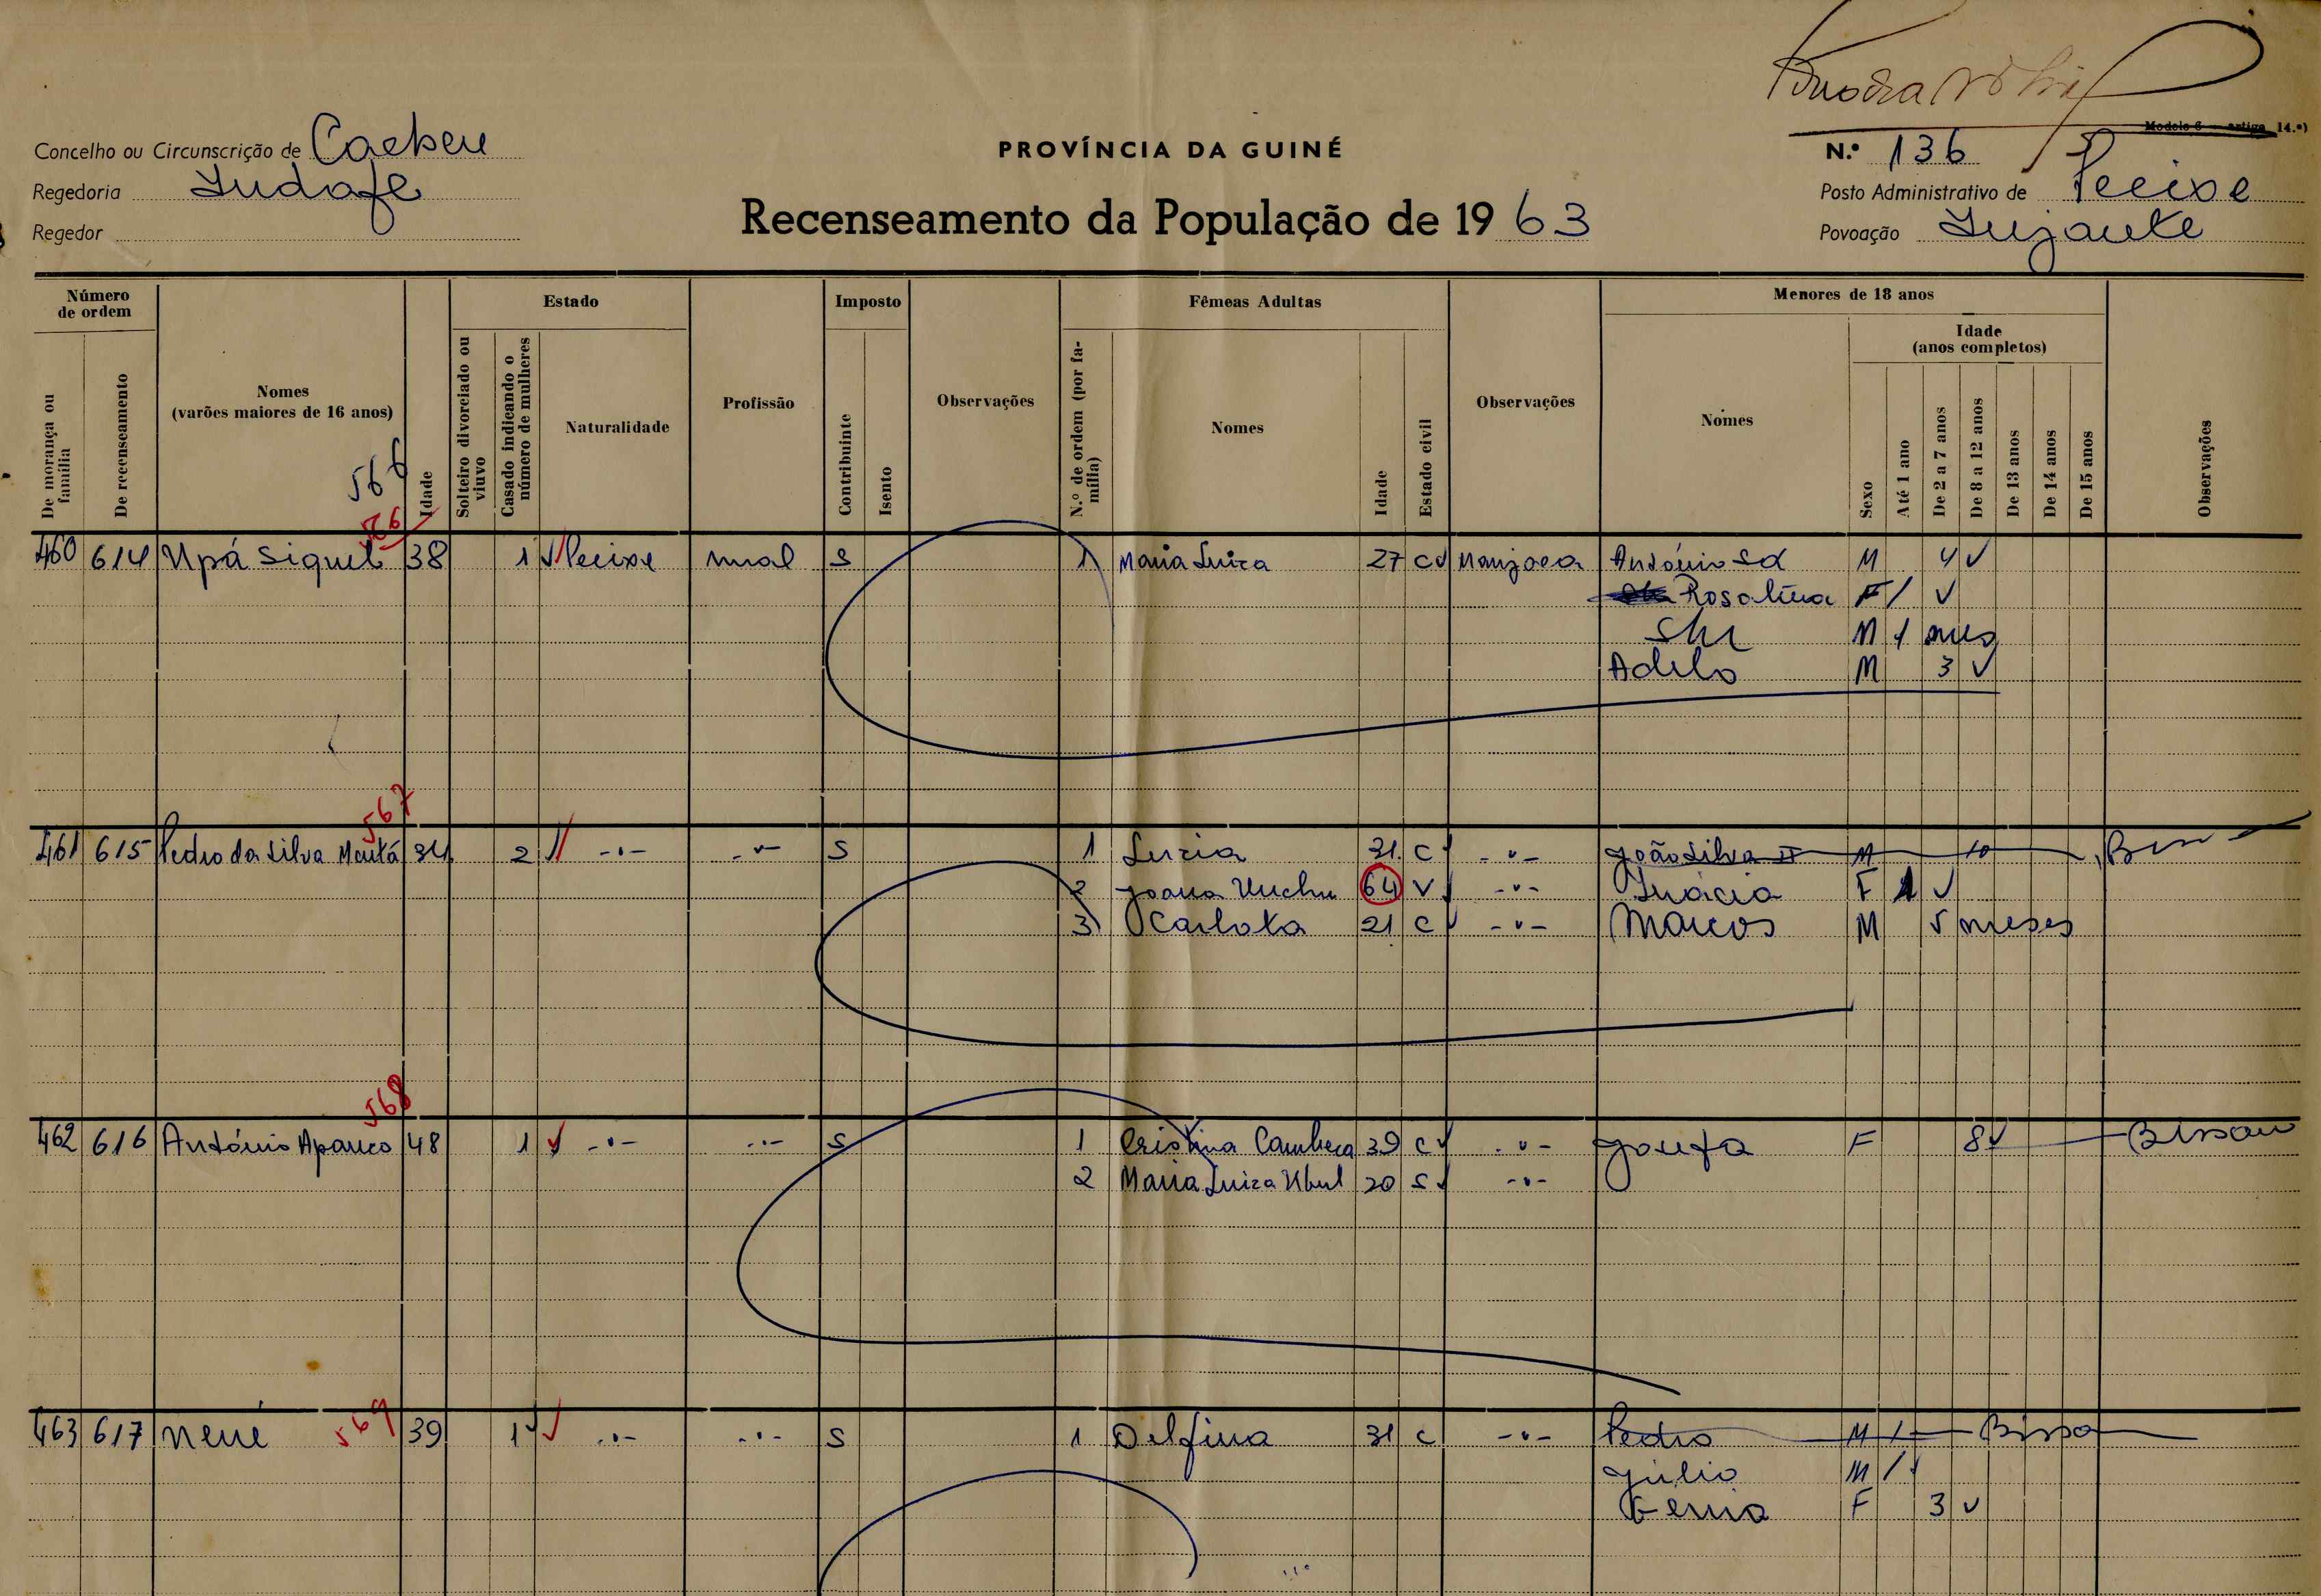 Modelo 6 — artigo 14.º)
Concelho ou Circunscrição de Cacheu
PROVÍNCIA DA GUINÉ
N.º 136
Regedoria
Posto Administrativo de Pecixe
Recenseamento da População de 1963
Regedor
Povoação
Número de ordem
De morança ou família
De recenseamento
Nomes
(varões maiores de 16 anos)
Idade
Estado
Solteiro divorciado ou viuvo
Casado indicando o número de mulheres
Naturalidade
Profissão
Imposto
Contribuinte
Isento
Observações
Fêmeas Adultas
N.º de ordem (por família)
Nomes
Idade
Estado civil
Observações
Menores de 18 anos
Nomes
Idade
(anos completos)
Sexo
Até 1 ano
De 2 a 7 anos
De 8 a 12 anos
De 13 anos
De 14 anos
De 15 anos
Observações
566
460 614 Upá Siquel 38 1 Pecixe rural S 1 Maria Luiza 27 C Manjaca António Sá M 4
Rosalina F 1
M 1 mes
Adelo M 3
567
461 615 Pedro da Silva Mantá 34 2 -"- -"- S 1 Luzia 31 C -"- João Silva II M 10
2 Joana 64 V -"- Inácia F 1
3 Carlota 21 C -"- Marcos M 5 meses
568
462 616 António Apanco 48 1 -"- -"- S 1 Cristina 39 C -"- F 8 Bissau
2 Maria Luiza 20 S -"-
569
463 617 Nené 39 1 -"- -"- S 1 Delfina 31 C -"- Pedro M 1
Júlio M 1
F 3